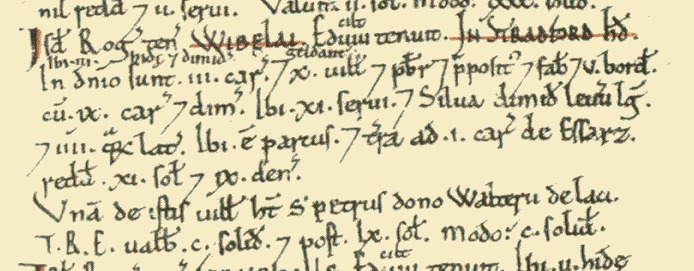 nil redd̄ 7 11. serui. Valuit. 11. sol. modo. xxx. sol.
Isd̄ Rog ten WIBELAI. Eduui tenuit. IN STRADFORD hd̄.
Ibi. iii. hidę 7 dimid geldant.
In dn̄io sunt. iii. car. 7 x. uilli 7 pb̄r 7 p̄posit 7 fab 7 v. bord.
cū. ix. car 7 dim. Ibi. xi. serui. 7 Silua dimid leuu lḡ.
7 iiii. lat. Ibi. ē parcus. 7 tr̄a ad. i. car de Essarz.
redd̄. xi. sol 7 ix. den.
Vnā de istis uill ht̄ S petrus dono Walterii de laci.
T. R. E. ualb̄. c. solid. 7 post. lx. sol. modo: c. solid.
tenuit. Ibi. v. hidę